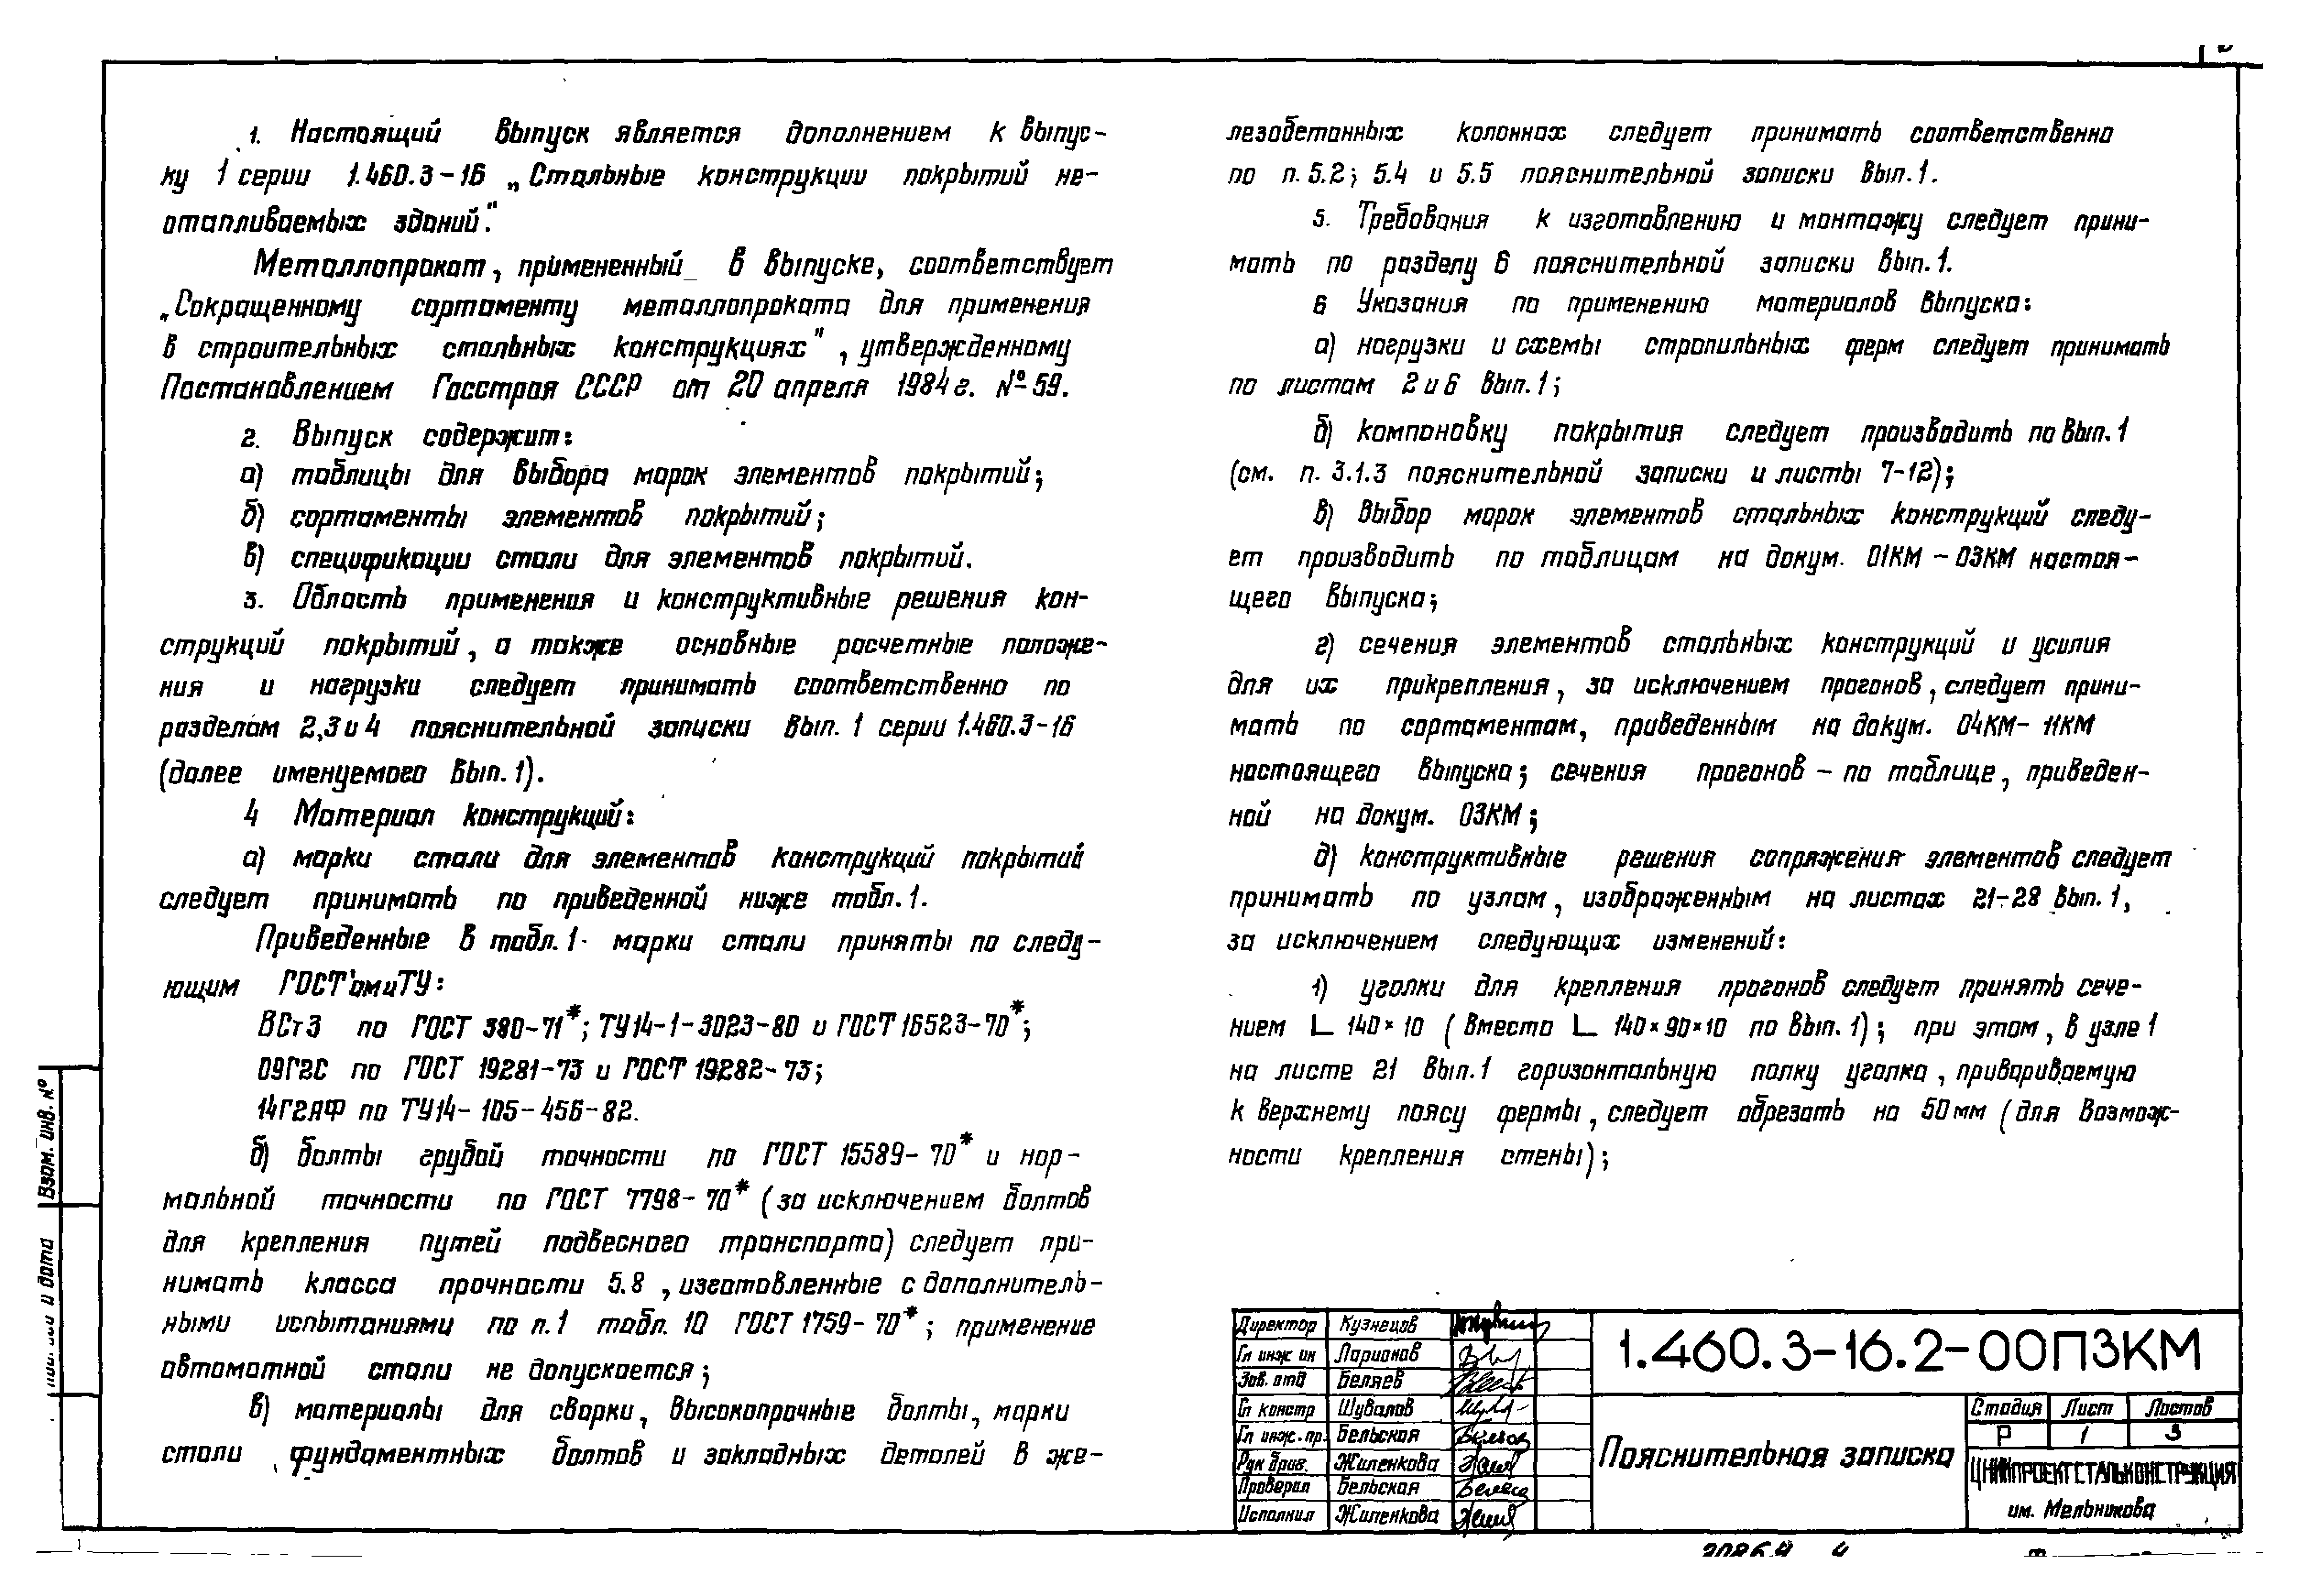 1. Настоящий выпуск является дополнением к выпус-
ку 1 серии 1.460.3-16 „Стальные конструкции покрытий не-
отапливаемых зданий".
Металлопрокат, примененный в выпуске, соответствует
„Сокращенному сортаменту металлопроката для применения
в строительных стальных конструкциях", утвержденному
Постановлением Госстроя СССР от 20 апреля 1984 г. № 59.
2. Выпуск содержит:
а) таблицы для выбора марок элементов покрытий;
б) сортаменты элементов покрытий;
в) спецификации стали для элементов покрытий.
3. Область применения и конструктивные решения кон-
струкций покрытий, а также основные расчетные положе-
ния и нагрузки следует принимать соответственно по
разделам 2,3 и 4 пояснительной записки вып. 1 серии 1.460.3-16
(далее именуемого вып. 1).
4 Материал конструкций:
а) марки стали для элементов конструкций покрытий
следует принимать по приведенной ниже табл. 1.
Приведенные в табл. 1 марки стали приняты по следу-
ющим ГОСТ'ам и ТУ:
ВСт3 по ГОСТ 380-71*; ТУ14-1-3023-80 и ГОСТ 16523-70*;
09Г2С по ГОСТ 19281-73 и ГОСТ 19282-73;
14Г2АФ по ТУ14-105-456-82.
б) болты грубой точности по ГОСТ 15589-70* и нор-
мальной точности по ГОСТ 7798-70* (за исключением болтов
для крепления путей подвесного транспорта) следует при-
нимать класса прочности 5.8, изготовленные с дополнитель-
ными испытаниями по п.1 табл. 10 ГОСТ 1759-70*; применение
автоматной стали не допускается;
в) материалы для сварки, высокопрочные болты, марки
стали фундаментных болтов и закладных деталей в же-
лезобетонных колоннах следует принимать соответственно
по п. 5.2; 5.4 и 5.5 пояснительной записки вып. 1.
5. Требования к изготовлению и монтажу следует прини-
мать по разделу 6 пояснительной записки вып. 1.
6 Указания по применению материалов выпуска:
а) нагрузки и схемы стропильных ферм следует принимать
по листам 2 и 6 вып. 1;
б) компоновку покрытия следует производить по вып. 1
(см. п. 3.1.3 пояснительной записки и листы 7-12);
в) выбор марок элементов стальных конструкций следу-
ет производить по таблицам на докум. 01КМ - 03КМ настоя-
щего выпуска;
г) сечения элементов стальных конструкций и усилия
для их прикрепления, за исключением прогонов, следует прини-
мать по сортаментам, приведенным на докум. 04КМ- 11КМ
настоящего выпуска; сечения прогонов - по таблице, приведен-
ной на докум. 03КМ;
д) конструктивные решения сопряжения элементов следует
принимать по узлам, изображенным на листах 21-28 вып. 1,
за исключением следующих изменений:
1) уголки для крепления прогонов следует принять сече-
нием ∟ 140×10 (вместо ∟ 140×90×10 по вып. 1); при этом, в узле 1
на листе 21 вып. 1 горизонтальную полку уголка, привариваемую
к верхнему поясу фермы, следует обрезать на 50 мм (для возмож-
ности крепления стены);
Взам. инв. №
и дата
Директор Кузнецов
Гл инж ин Ларионов
Зав. отд Беляев
Гл констр Шувалов
Гл инж. пр. Бельская
Рук бриг. Жиленкова
Проверил Бельская
Исполнил Жиленкова
1.460.3-16.2-00ПЗКМ
Пояснительная записка
Стадия Лист Листов
Р 1 3
ЦНИИПРОЕКТСТАЛЬКОНСТРУКЦИЯ
им. Мельникова